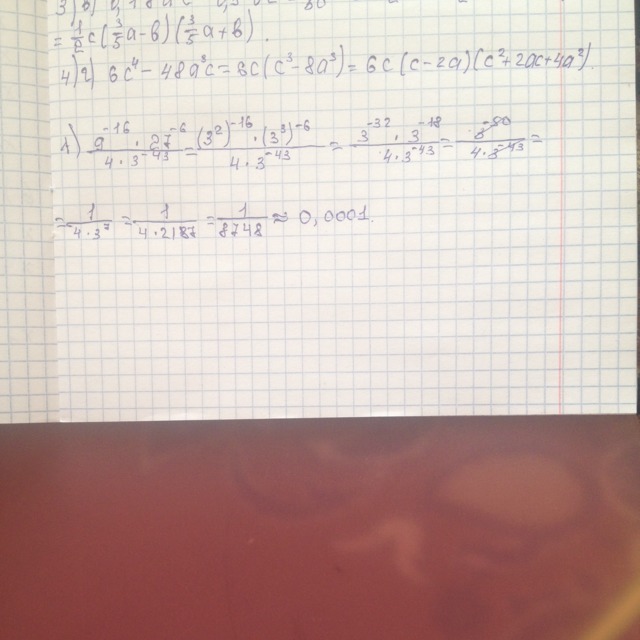 = 1/2 c (3/5 a - в) (3/5 a + в).
4) г) 6c⁴ - 48a³c = 6c (c³ - 8a³) = 6c (c - 2a) (c² + 2ac + 4a²).
1) (9⁻¹⁶ · 27⁻⁶)/(4 · 3⁻⁴³) = ((3²)⁻¹⁶ · (3³)⁻⁶)/(4 · 3⁻⁴³) = (3⁻³² · 3⁻¹⁸)/(4 · 3⁻⁴³) = 3⁻⁵⁰/(4 · 3⁻⁴³) =
= 1/(4 · 3⁷) = 1/(4 · 2187) = 1/8748 ≈ 0,0001.